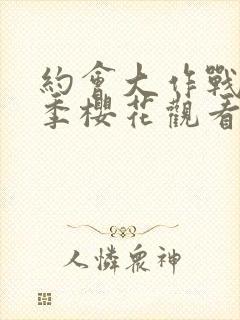 約會大作戰
季櫻花觀看
人憐眾神